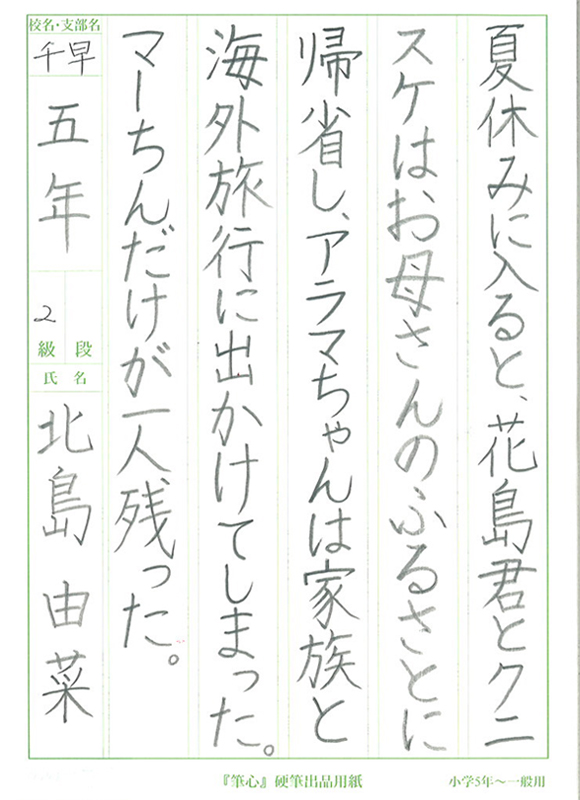 夏休みに入ると、花島君とクニ
スケはお母さんのふるさとに
帰省し、アラマちゃんは家族と
海外旅行に出かけてしまった。
マーちんだけが一人残った。
校名・支部名
千早
五年
2
級 段
氏名
北島由菜
『筆心』硬筆出品用紙
小学5年〜一般用